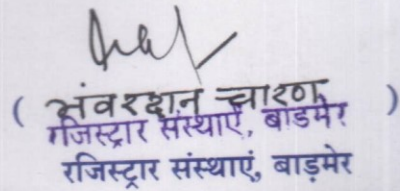 ( भंवरदान चारण )
रजिस्ट्रार संस्थाएं, बाड़मेर
रजिस्ट्रार संस्थाएं, बाड़मेर